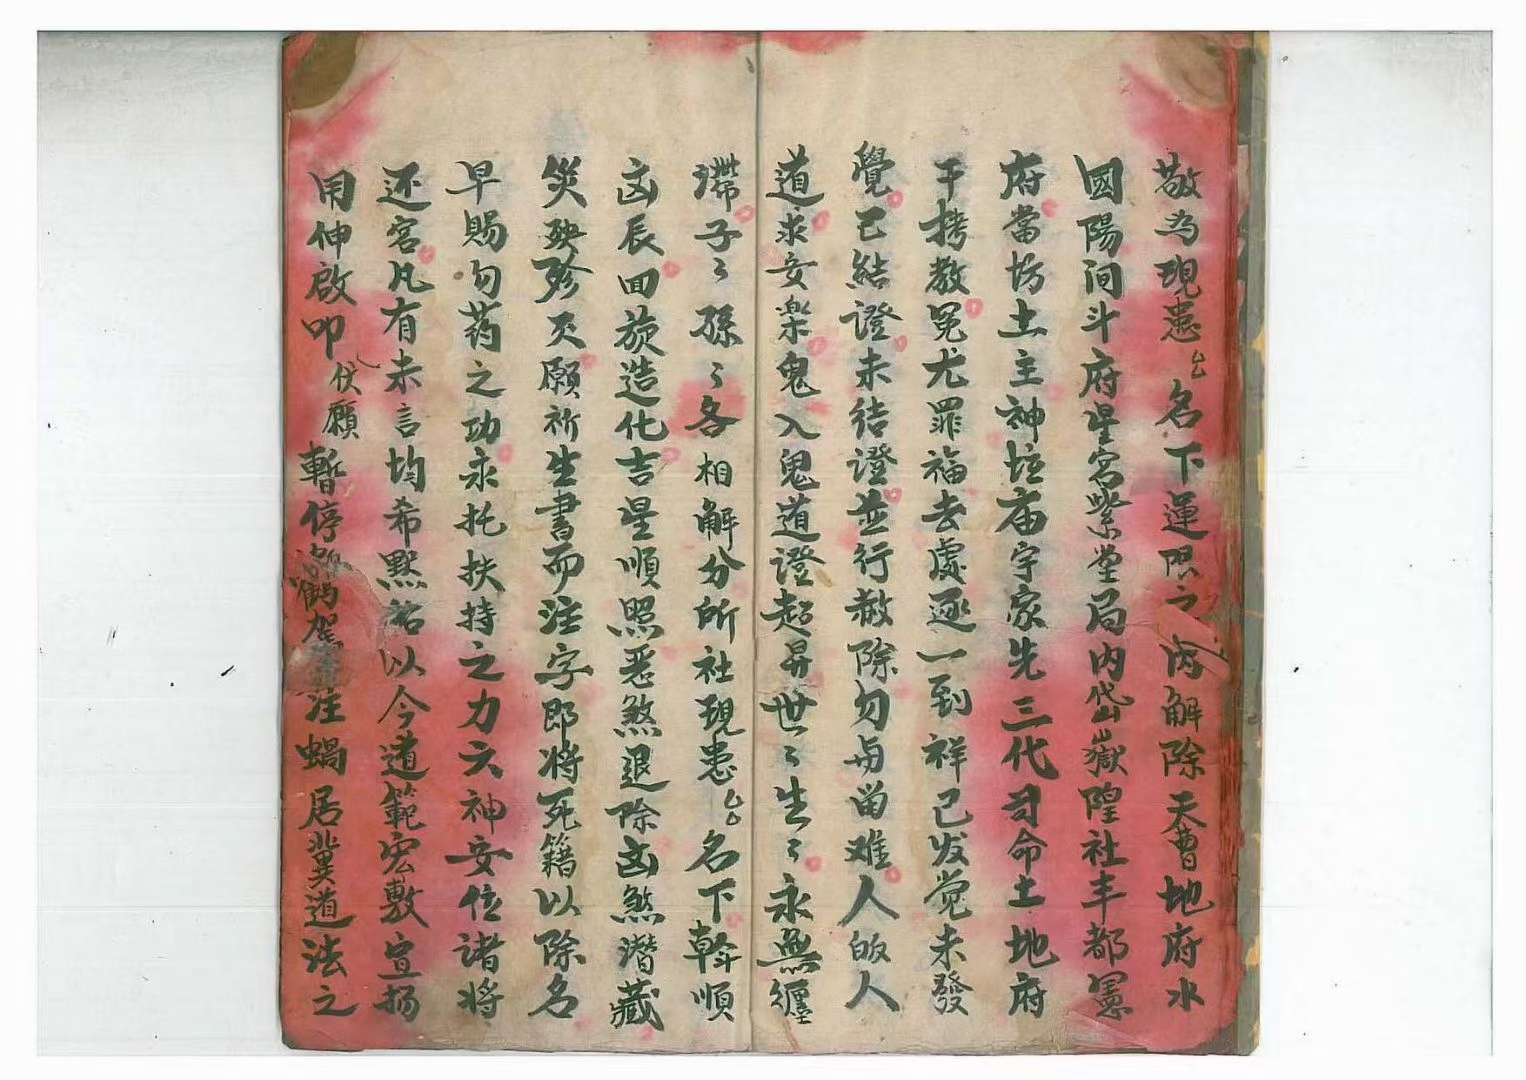 敬为現患厶厶名下運限之内解除天曹地府水
國陽间斗府星宫紫堂局内岱嶽隍社丰都冥
府當坊土主神坛庙宇家先三代司命土地府
干拷教冤尤罪福去處逐一到祥已发觉未發
覺已結證未结證並行赦除勿为畄难人皈人
道求安楽鬼入鬼道證超昇世〻生〻永無纏
滞子〻孫〻各相解分所社現患厶厶名下斡順
凶辰回旋造化吉星順照恶煞退除凶煞潛藏
災殃殄灭願祈生書而注字即将死籍以除名
早賜勿药之功永托扶持之力六神安位诸将
还宫凡有未言均希默祐以今道範宏敷宣扬
用伸啟叩伏願暫停鶴駕注蝎居冀道法之